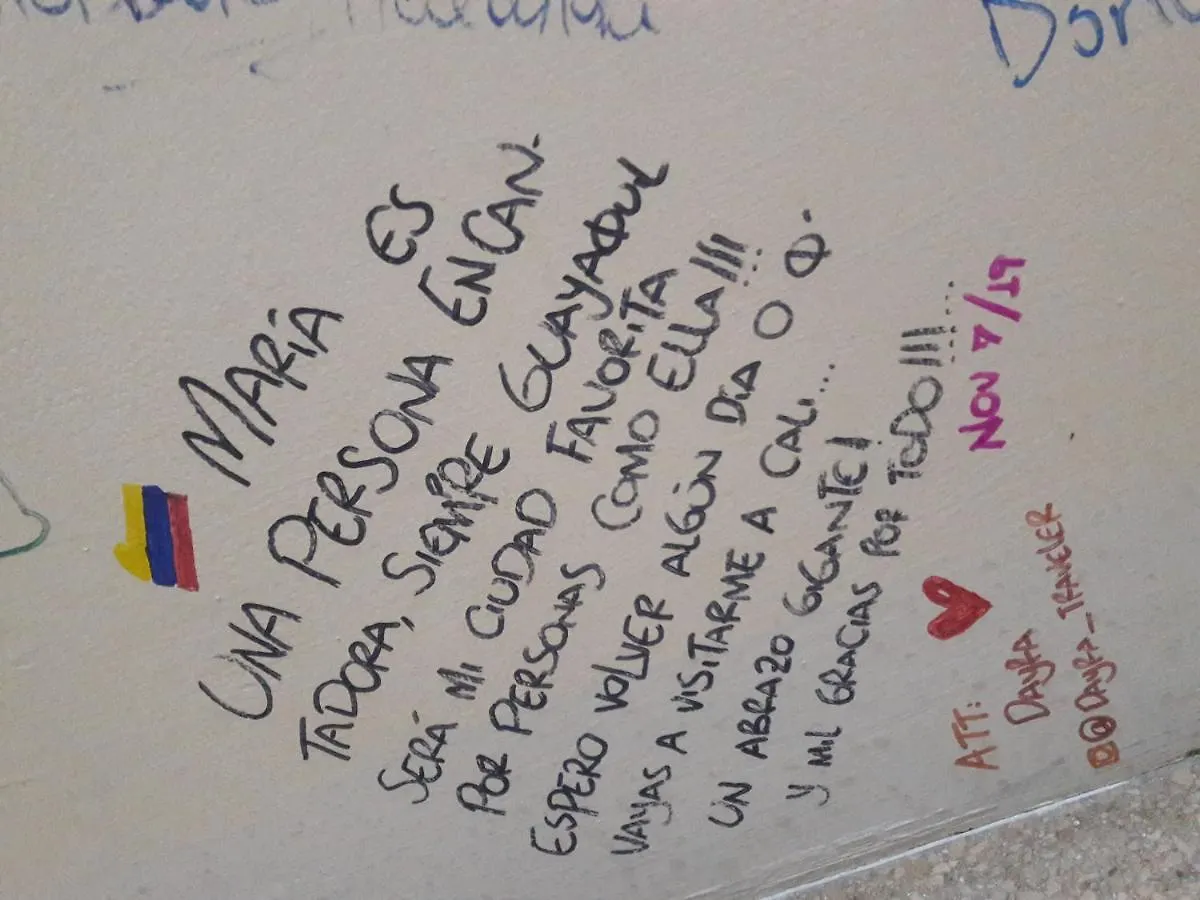 MARÍA ES
UNA PERSONA ENCAN-
TADORA, SIEMPRE GUAYAQUIL
SERÁ MI CIUDAD FAVORITA
POR PERSONAS COMO ELLA!!!
ESPERO VOLVER ALGÚN DÍA O Q.
VAYAS A VISITARME A CALI...
UN ABRAZO GIGANTE!
Y MIL GRACIAS POR TODO!!!...
ATT:
DAYRA
@DAYRA_TRAVELER
NOV 7/19